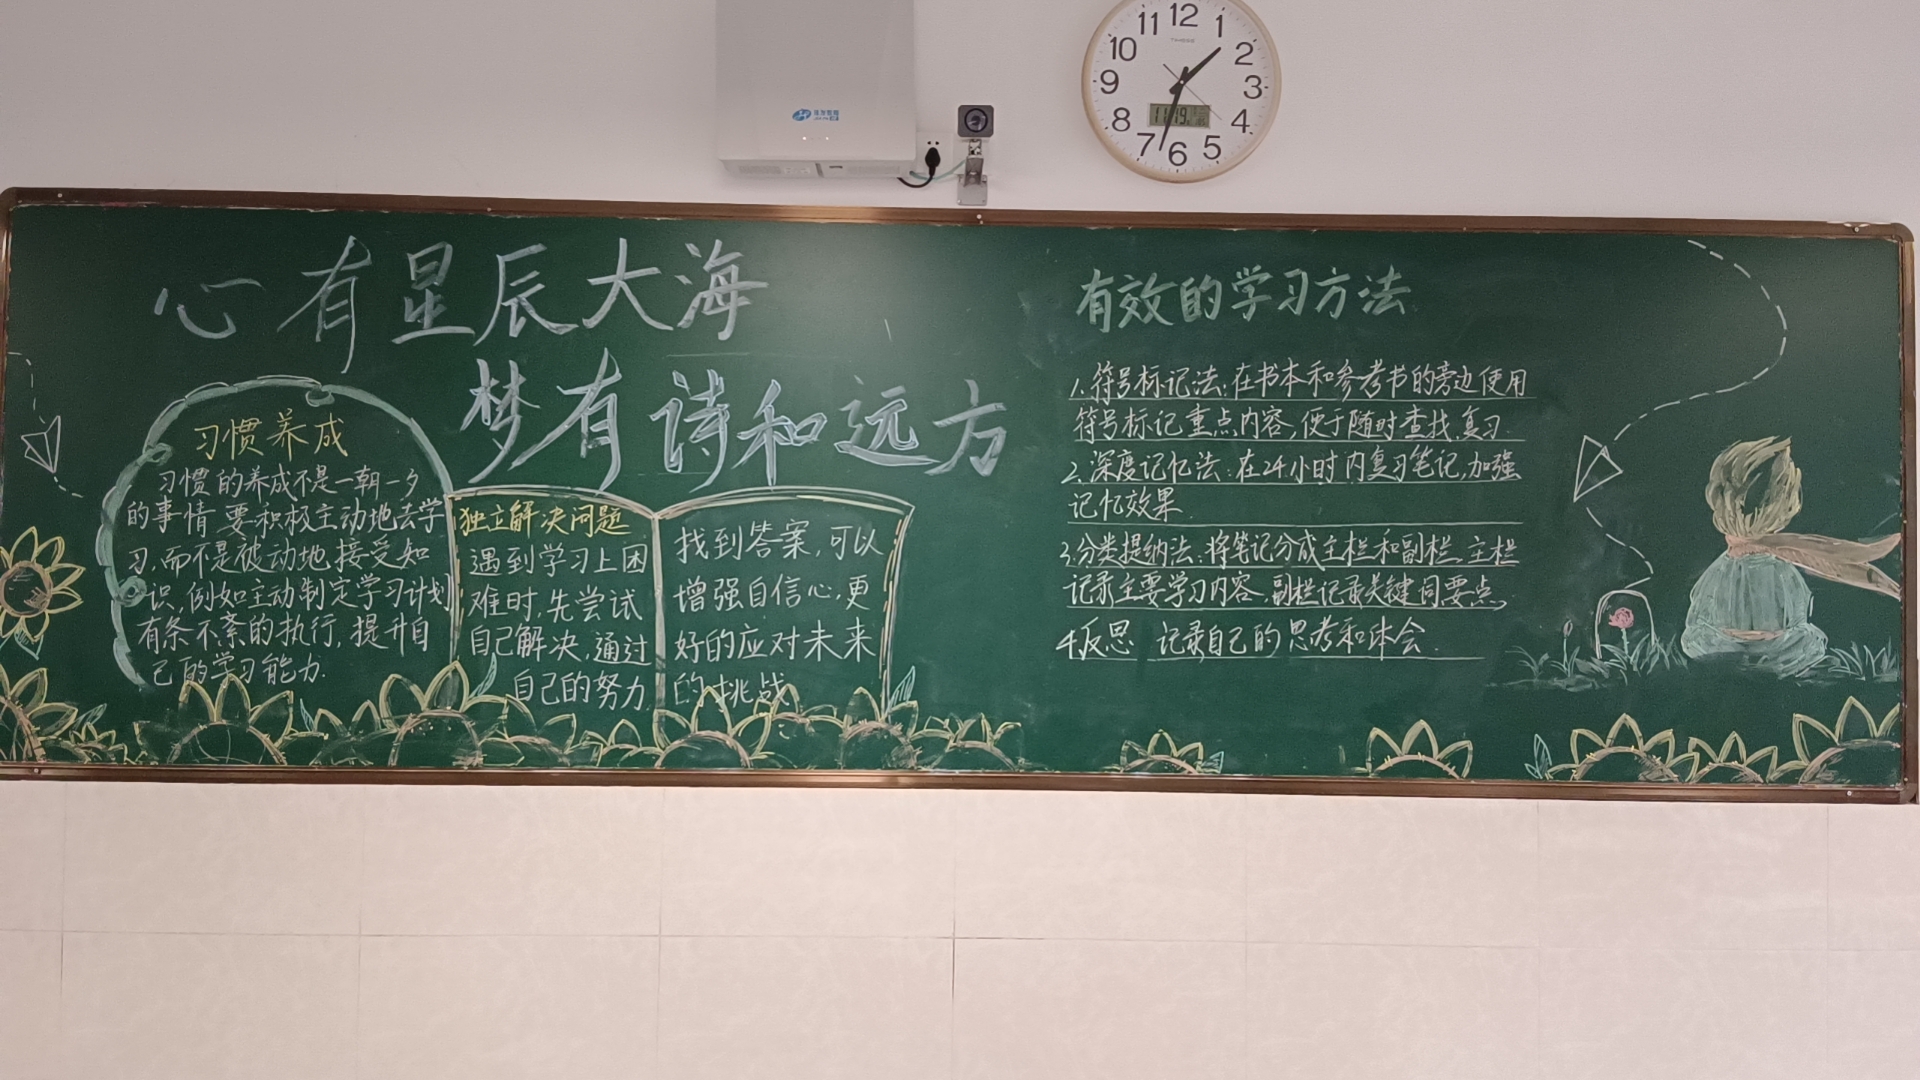 12
1
2
3
4
5
6
7
8
9
10
11
心有星辰大海
梦有诗和远方
习惯养成
习惯的养成不是一朝一夕
的事情 要积极主动地去学
习,而不是被动地接受知
识,例如主动制定学习计划
有条不紊的执行,提升自
己的学习能力.
独立解决问题
遇到学习上困
难时,先尝试
自己解决,通过
自己的努力
找到答案,可以
增强自信心,更
好的应对未来
的挑战
有效的学习方法
1.符号标记法:在书本和参考书的旁边使用
符号标记重点内容,便于随时查找,复习.
2.深度记忆法:在24小时内复习笔记,加强
记忆效果.
3.分类提纳法:将笔记分成主栏和副栏.主栏
记录主要学习内容.副栏记录关键词要点,
4.反思 记录自己的思考和体会.